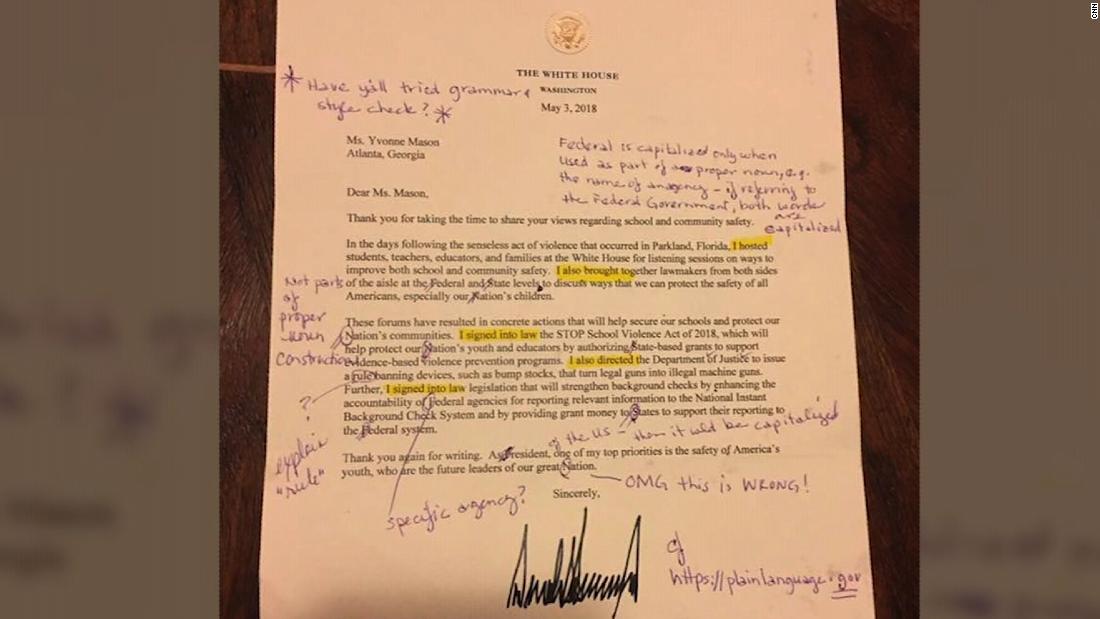 CNN
THE WHITE HOUSE
WASHINGTON
May 3, 2018
* Have y'all tried grammar &
style check? *
Ms. Yvonne Mason
Atlanta, Georgia
Federal is capitalized only when
used as part of a proper noun, e.g.
the name of an agency – if referring to
the Federal Government, both words
are
capitalized
Dear Ms. Mason,
Thank you for taking the time to share your views regarding school and community safety.
In the days following the senseless act of violence that occurred in Parkland, Florida, I hosted
students, teachers, educators, and families at the White House for listening sessions on ways to
improve both school and community safety. I also brought together lawmakers from both sides
of the aisle at the Federal and State levels to discuss ways that we can protect the safety of all
Americans, especially our Nation's children.
Not parts
of
proper
noun
construction
These forums have resulted in concrete actions that will help secure our schools and protect our
Nation's communities. I signed into law the STOP School Violence Act of 2018, which will
help protect our Nation's youth and educators by authorizing State-based grants to support
evidence-based violence prevention programs. I also directed the Department of Justice to issue
a rule banning devices, such as bump stocks, that turn legal guns into illegal machine guns.
Further, I signed into law legislation that will strengthen background checks by enhancing the
accountability of Federal agencies for reporting relevant information to the National Instant
Background Check System and by providing grant money to States to support their reporting to
the Federal system.
?
explain
"rule"
of the US – then it would be capitalized
Thank you again for writing. As President, one of my top priorities is the safety of America's
youth, who are the future leaders of our great Nation.
OMG this is WRONG!
specific agency?
Sincerely,
https://plainlanguage.gov